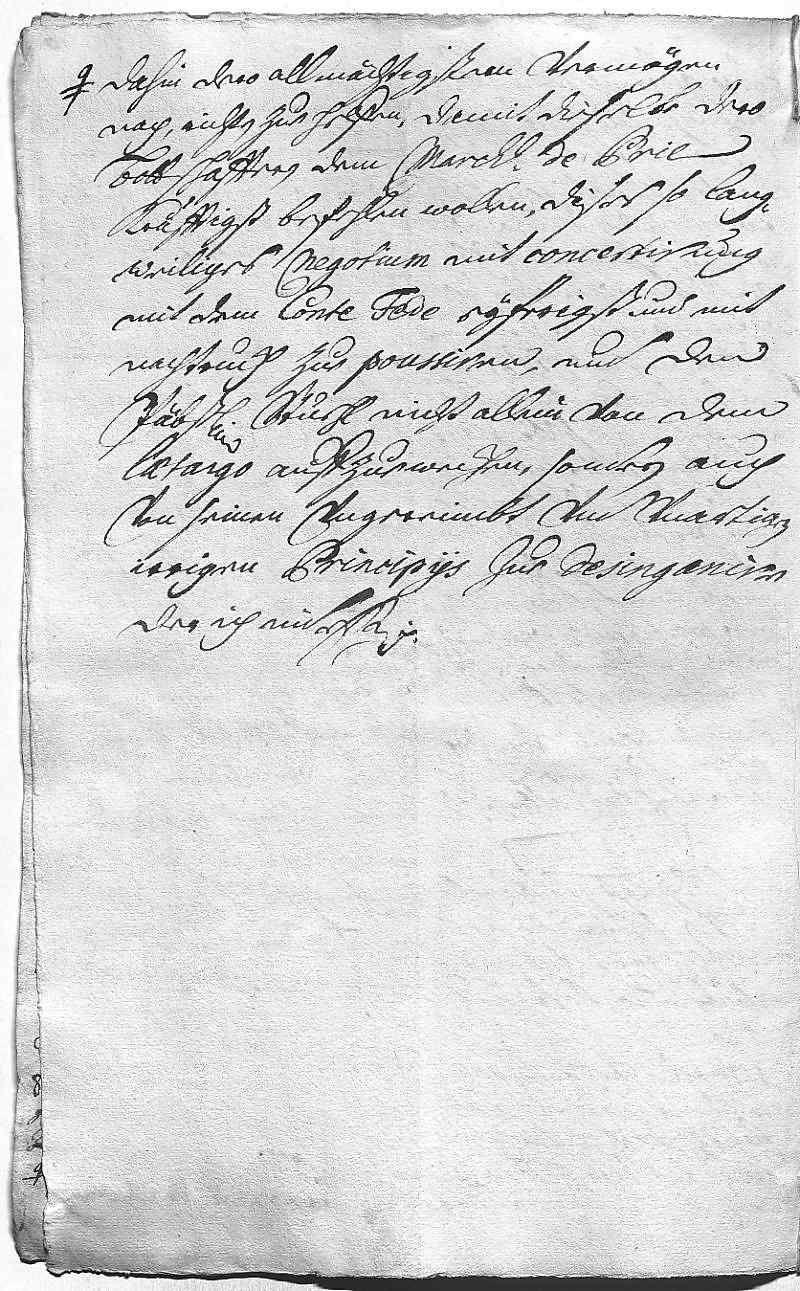 dahin dero allmächtigisten Vermögen
nach, zu helffen, damit dieselbe dero
Pottschafftern dem March: de Prie
kräfftigst befehlen wollen, dises so lang,
weiliges Negotium mit concertirung
mit dem Conte Fede eyfrigst und mit
nachtruckh zu poussiren, und den
Päbstl: Stuehl nicht allein von dem
auffzuweckhen, sondern auch
von seinen Ungereimbt und
irrigen Principijs zu desinganiren
der ich mich